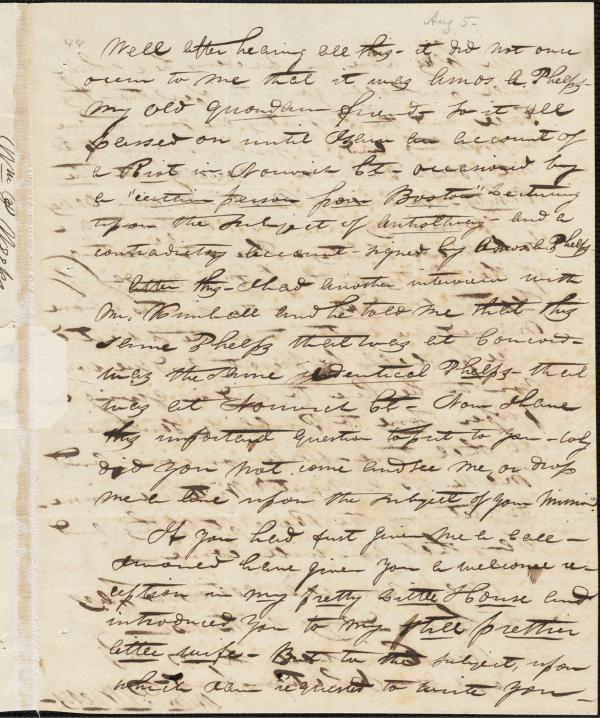 Aug 5.
48
Well after hearing all this - it did not once
occur to me that it was Amos A Phelps -
my old quondam friend, so it all
passed on until I saw an account of
a Riot in Norwich Ct - occasioned by
a "certain person from Boston" lecturing
upon the subject of antislavery - and a
contradictory account - signed by Amos A Phelps
after this - I had another interview with
Mr. Kimball and he told me that this
same Phelps that was at Concord -
was the same identical Phelps - that
was at Norwich Ct - Now I have
this important question to put to you - why
did you not come and see me, or drop
me a line upon the subject of your mission
If you had just given me a call -
I would have given you a welcome re-
ception in my pretty little House and
introduced you to my still prettier
little wife - But to the subject, upon
which I am requested to write you -